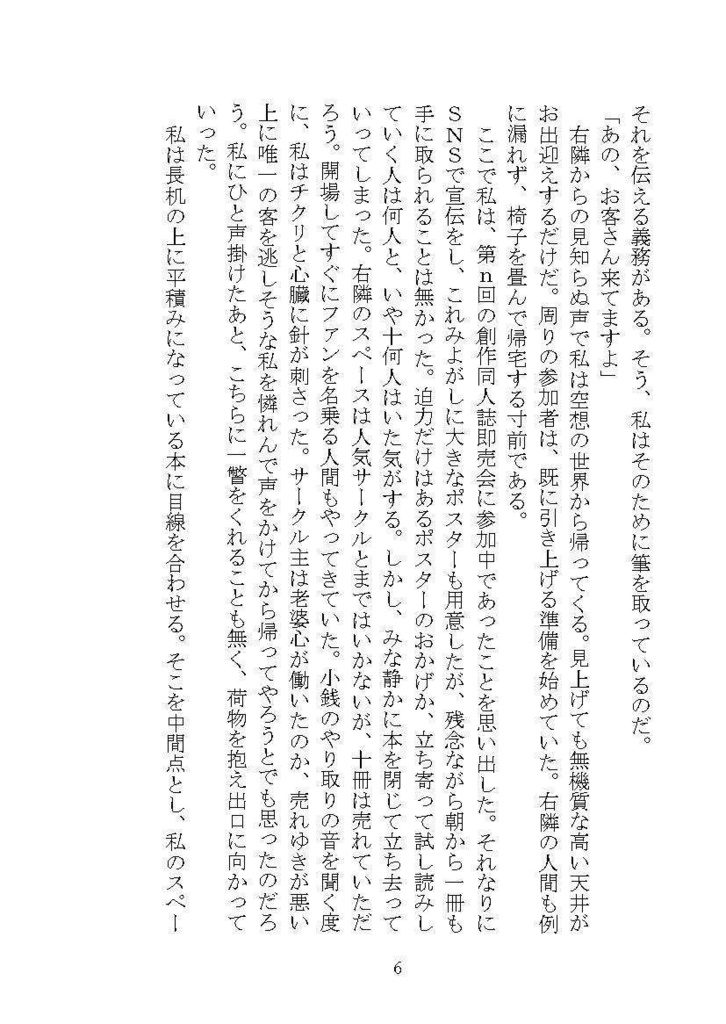 それを伝える義務がある。そう、私はそのために筆を取っているのだ。
「あの、お客さん来てますよ」
右隣からの見知らぬ声で私は空想の世界から帰ってくる。見上げても無機質な高い天井が
お出迎えするだけだ。周りの参加者は、既に引き上げる準備を始めていた。右隣の人間も例
に漏れず、椅子を畳んで帰宅する寸前である。
ここで私は、第ｎ回の創作同人誌即売会に参加中であったことを思い出した。それなりに
ＳＮＳで宣伝をし、これみよがしに大きなポスターも用意したが、残念ながら朝から一冊も
手に取られることは無かった。迫力だけはあるポスターのおかげか、立ち寄って試し読みし
ていく人は何人と、いや十何人はいた気がする。しかし、みな静かに本を閉じて立ち去って
いってしまった。右隣のスペースは人気サークルとまではいかないが、十冊は売れていただ
ろう。開場してすぐにファンを名乗る人間もやってきていた。小銭のやり取りの音を聞く度
に、私はチクリと心臓に針が刺さった。サークル主は老婆心が働いたのか、売れゆきが悪い
上に唯一の客を逃しそうな私を憐れんで声をかけてから帰ってやろうとでも思ったのだろ
う。私にひと声掛けたあと、こちらに一瞥をくれることも無く、荷物を抱え出口に向かって
いった。
私は長机の上に平積みになっている本に目線を合わせる。そこを中間点とし、私のスペー
6